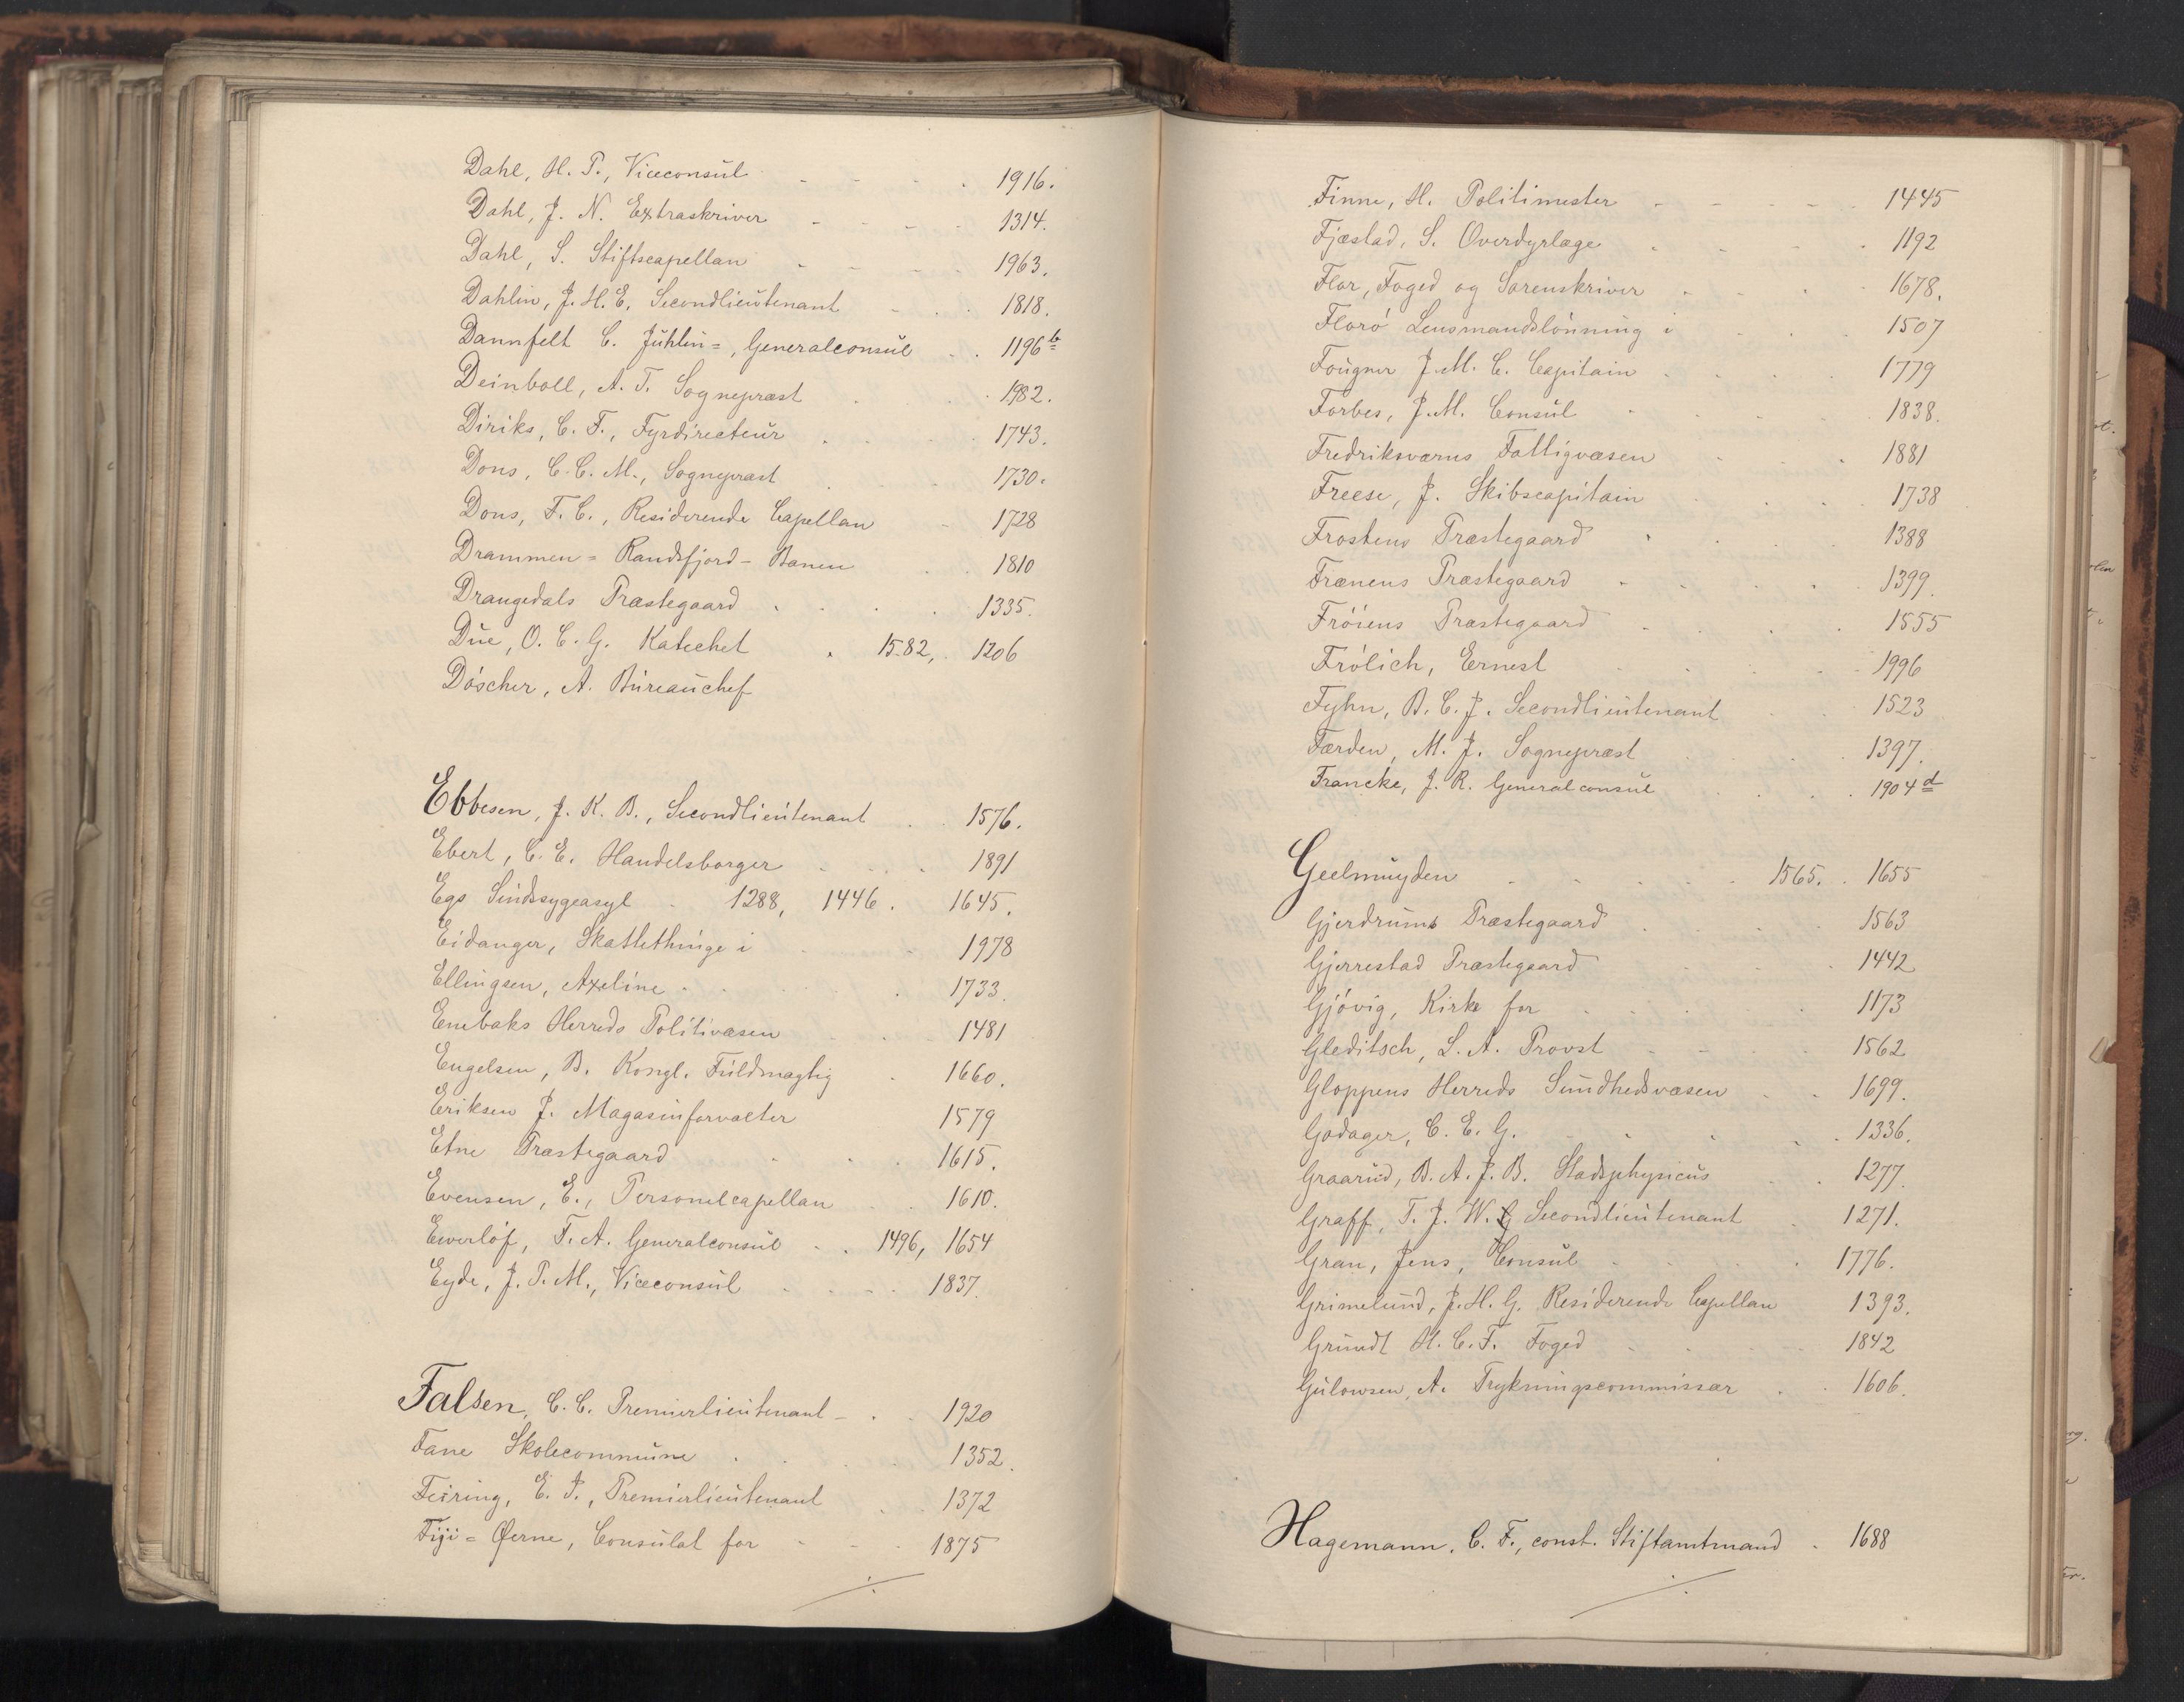 Dahl, H. P., Viceconsul 1916.
Dahl, J. N. Extraskriver 1314.
Dahl, S. Stiftscapellan 1963.
Dahlin, J. H. E. Secondlieutenant 1818.
Dannfelt C. Juhlin=, Generalconsul 1196 b
Deinboll, A. T. Sognepræst 1982.
Diriks, C. F., Fyrdirecteur 1743.
Dons, C. C. M., Sognepræst 1730.
Dons, F. C., Residerende Capellan 1728
Drammen = Randsfjord - Banen 1810
Drangedals Præstegaard 1335.
Due, O. C. G. Katechet 1582, 1206
Döscher, A. Bureauchef
Ebbesen, J. K. B., Secondlieutenant 1576.
Ebert, C. E. Handelsborger 1891
Egs Sindssygeasyl 1288, 1446. 1645.
Eidanger, Skattethinge i 1978
Ellingsen, Axeline 1733.
Enebaks Herreds Politivæsen 1481
Engelsen, B. Kongl. Fuldmægtig 1660.
Eriksen J. Magasinforvalter 1579
Etne Præstegaard 1615.
Evensen, E., Personelcapellan 1610.
Ewerlöf, F. A. Generalconsul 1496, 1654
Eyde, J. P. M., Viceconsul 1837.
Falsen, C. C. Premierlieutenant 1920
Fane Skolecommune 1352.
Feiring, E. P., Premierlieutenant 1372
Fiji = Øerne, Consulat for 1875
Finne, H. Politimester 1445
Fjæstad, S. Overdyrlæge 1192
Flor, Foged og Sorenskriver 1678.
Florö Lensmandslönning i 1507
Fougner J. M. C. Capitain 1779
Forbes, J. M. Consul 1838.
Fredriksværns Fattigvæsen 1881
Freese, J. Skibscapitain 1738
Frostens Præstegaard 1388
Frænens Præstegaard 1399.
Fröiens Præstegaard 1555
Frölich, Ernest 1996
Fyhn, B. C. J. Secondlieutenant 1523
Færden, M. J. Sognepræst 1397.
Francke, J. R. Generalconsul 1904 d
Geelmuyden 1565. 1655
Gjerdrums Præstegaard 1563
Gjerrestad Præstegaard 1442
Gjövig, Kirke for 1173
Gleditsch, L. A. Provst 1562
Gloppens Herreds Sundhedsvæsen 1699.
Godager, C. E. G. 1336.
Graarud, B. A. J. B. Stadsphysicus 1277.
Graff, T. J. W. G Secondlieutenant 1271.
Gran, Jens, Consul 1776.
Grimelund, J. H. G. Residerende Capellan 1393.
Grundt H. C. F. Foged 1842
Gulowsen, A. Trykningscommissær 1606.
Hagemann, C. F., const. Stiftamtmand 1688